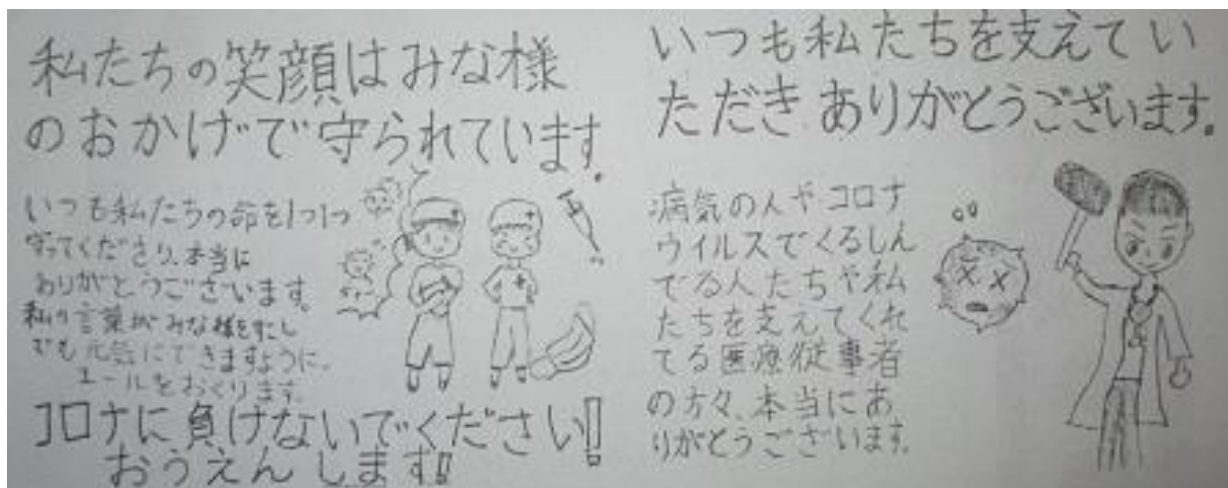 私たちの笑顔はみな様
のおかげで守られています。
いつも私たちの命を1つ1つ
守ってくださり、本当に
ありがとうございます。
私の言葉がみな様をすこし
でも元気にできますように。
エールをおくります。
コロナに負けないでください!!
おうえんします!!
いつも私たちを支えてい
ただきありがとうございます。
病気の人やコロナ
ウイルスでくるしん
でる人たちや私
たちを支えてくれ
てる医療従事者
の方々、本当にあ
りがとうございます。